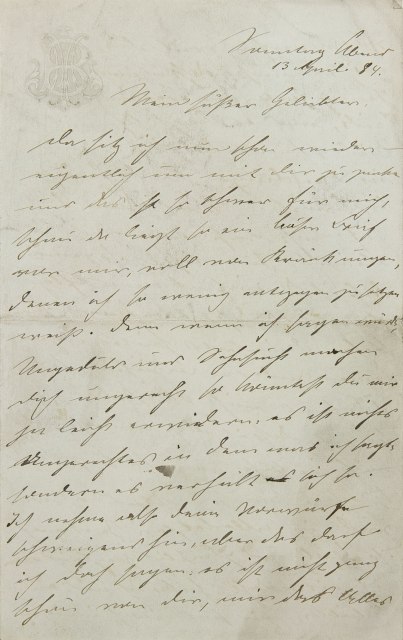 Sonntag Abend
13 April. 84.
Mein süßer Geliebter,
da sitz ich nun schon wieder
eigentlich um mit dir zu zanken
und das ist so schwer für mich,
schau da liegt so ein böser Brief
vor mir, voll von Kränkungen,
denen ich so wenig entgegen zu setzen
weiß. Denn wenn ich sagen würde,
Ungeduld und Sehnsucht machen
dich ungerecht so könntest du mir
zu leicht erwidern, es ist nichts
Ungerechtes in dem was ich sage
sondern es verhält sich so.
Ich nehme also deine Vorwürfe
schweigend hin, aber das darf
ich doch sagen, es ist nicht ganz
schön von dir, mir das Alles